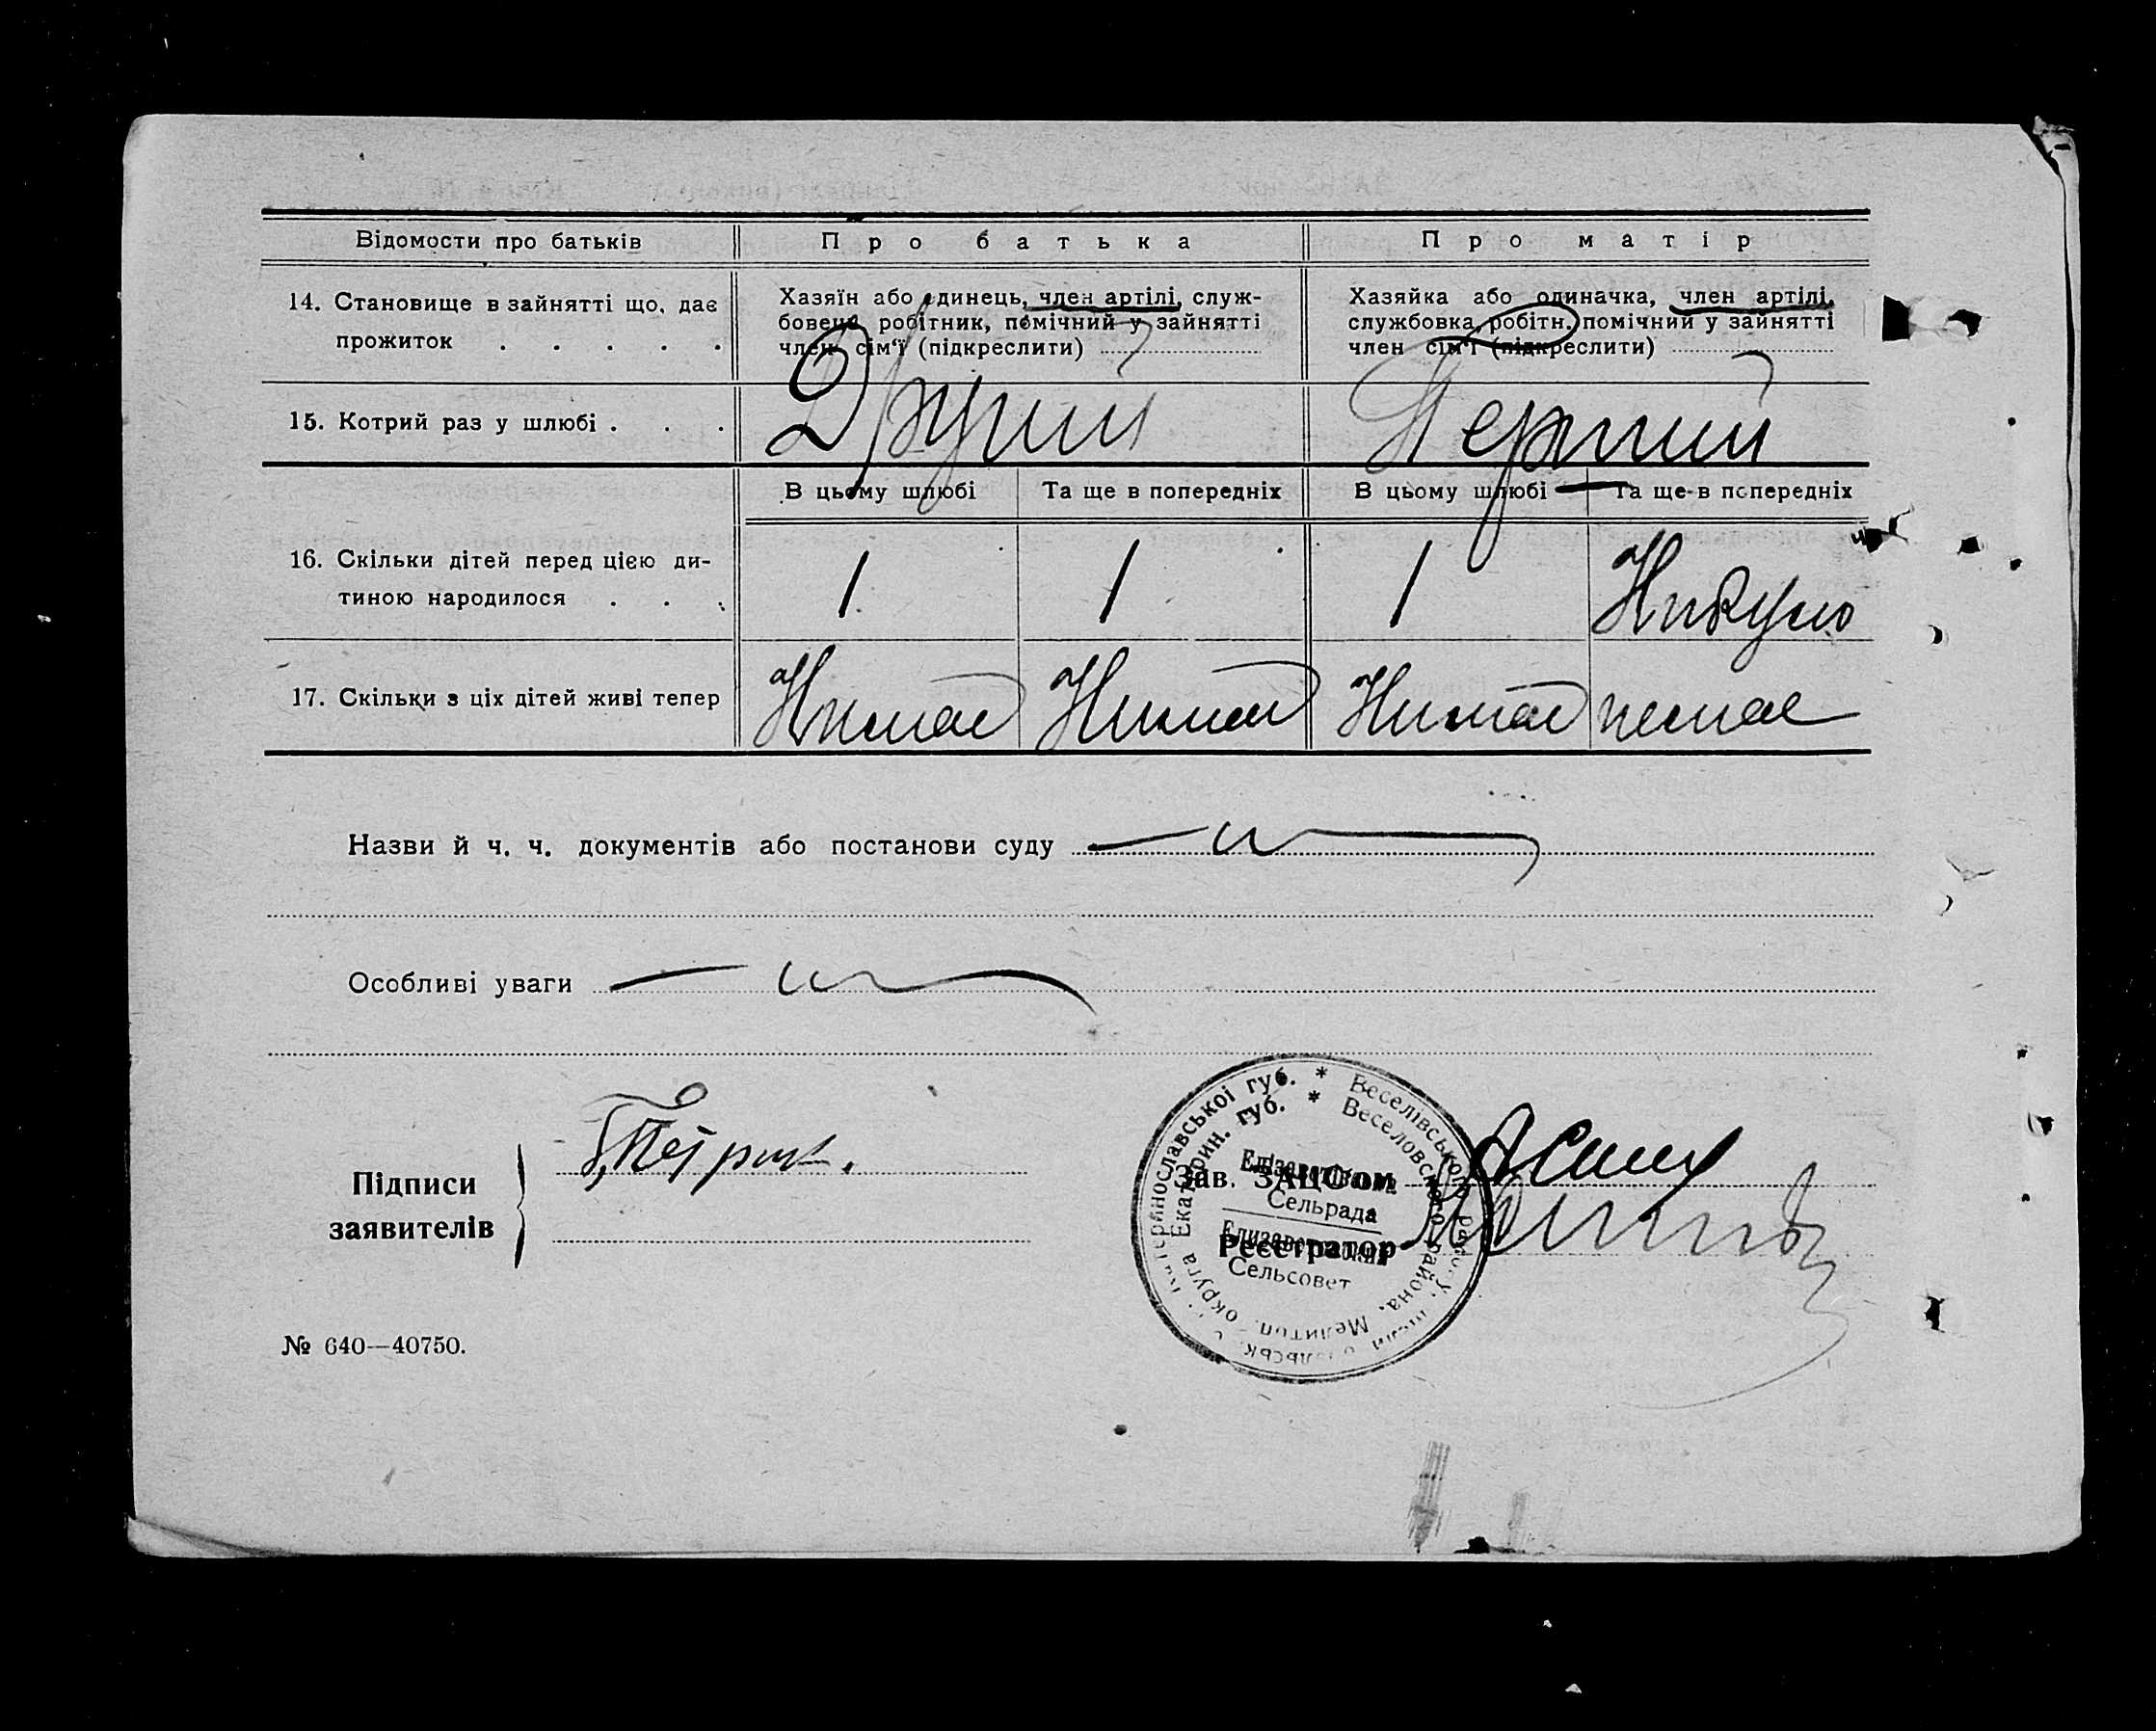 Відомости про батьків Про батька Про матір
14. Становище в зайнятті що, дає прожиток . . . . .
Хазяїн або єдинець, член артілі, служ-
бовець робітник, помічний у зайнятті
член сім‘ї (підкреслити)
Хазяйка або одиначка, член артілі,
службовка, робітн. помічний у зайнятті
член сім‘ї (підкреслити)
15. Котрий раз у шлюбі . . . Другий Перший
В цьому шлюбі Та ще в попередніх В цьому шлюбі Та ще в попередніх
16. Скільки дітей перед цією ди-
тиною народилося . . . 1 1 1 Нибуло
17. Скільки з ціх дітей живі тепер Нимає Нимає Нимає немає
Назви й ч. ч. документів або постанови суду
Особливі уваги
Підписи
заявителів
Зав. ЗАЦС‘ом
Реєстратор
Катеринославської губ. * Веселівського
Екатерин. губ. * Веселовского района, Мелитоп. округа
Сельрада
Сельсовет
№ 640—40750.